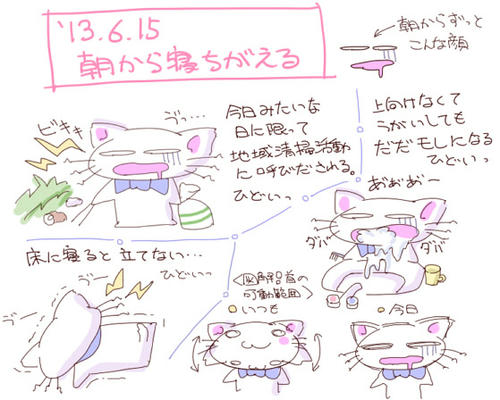 '13.6.15
朝から寝ちがえる
朝からずっと
こんな顔
ビキキ
ヴっ…
今日みたいな
日に限って
地域清掃活動
に呼びだされる。
ひどいっ
上向けなくて
うがいしても
だだモレになる
ひどいっ
あ゛ぁぁぁー
ダバ
ダバ
床に寝ると立てない…
ひどいっ
ヴー
ヴー
首の
可動範囲〉
○いつも
○今日